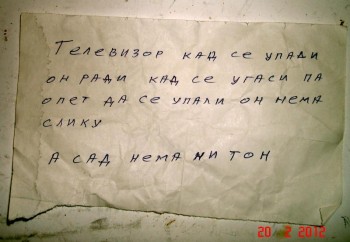 Телевизор кад се упали
он ради кад се угаси па
опет да се упали он нема
слику
а сад нема ни тон
20 2 2012